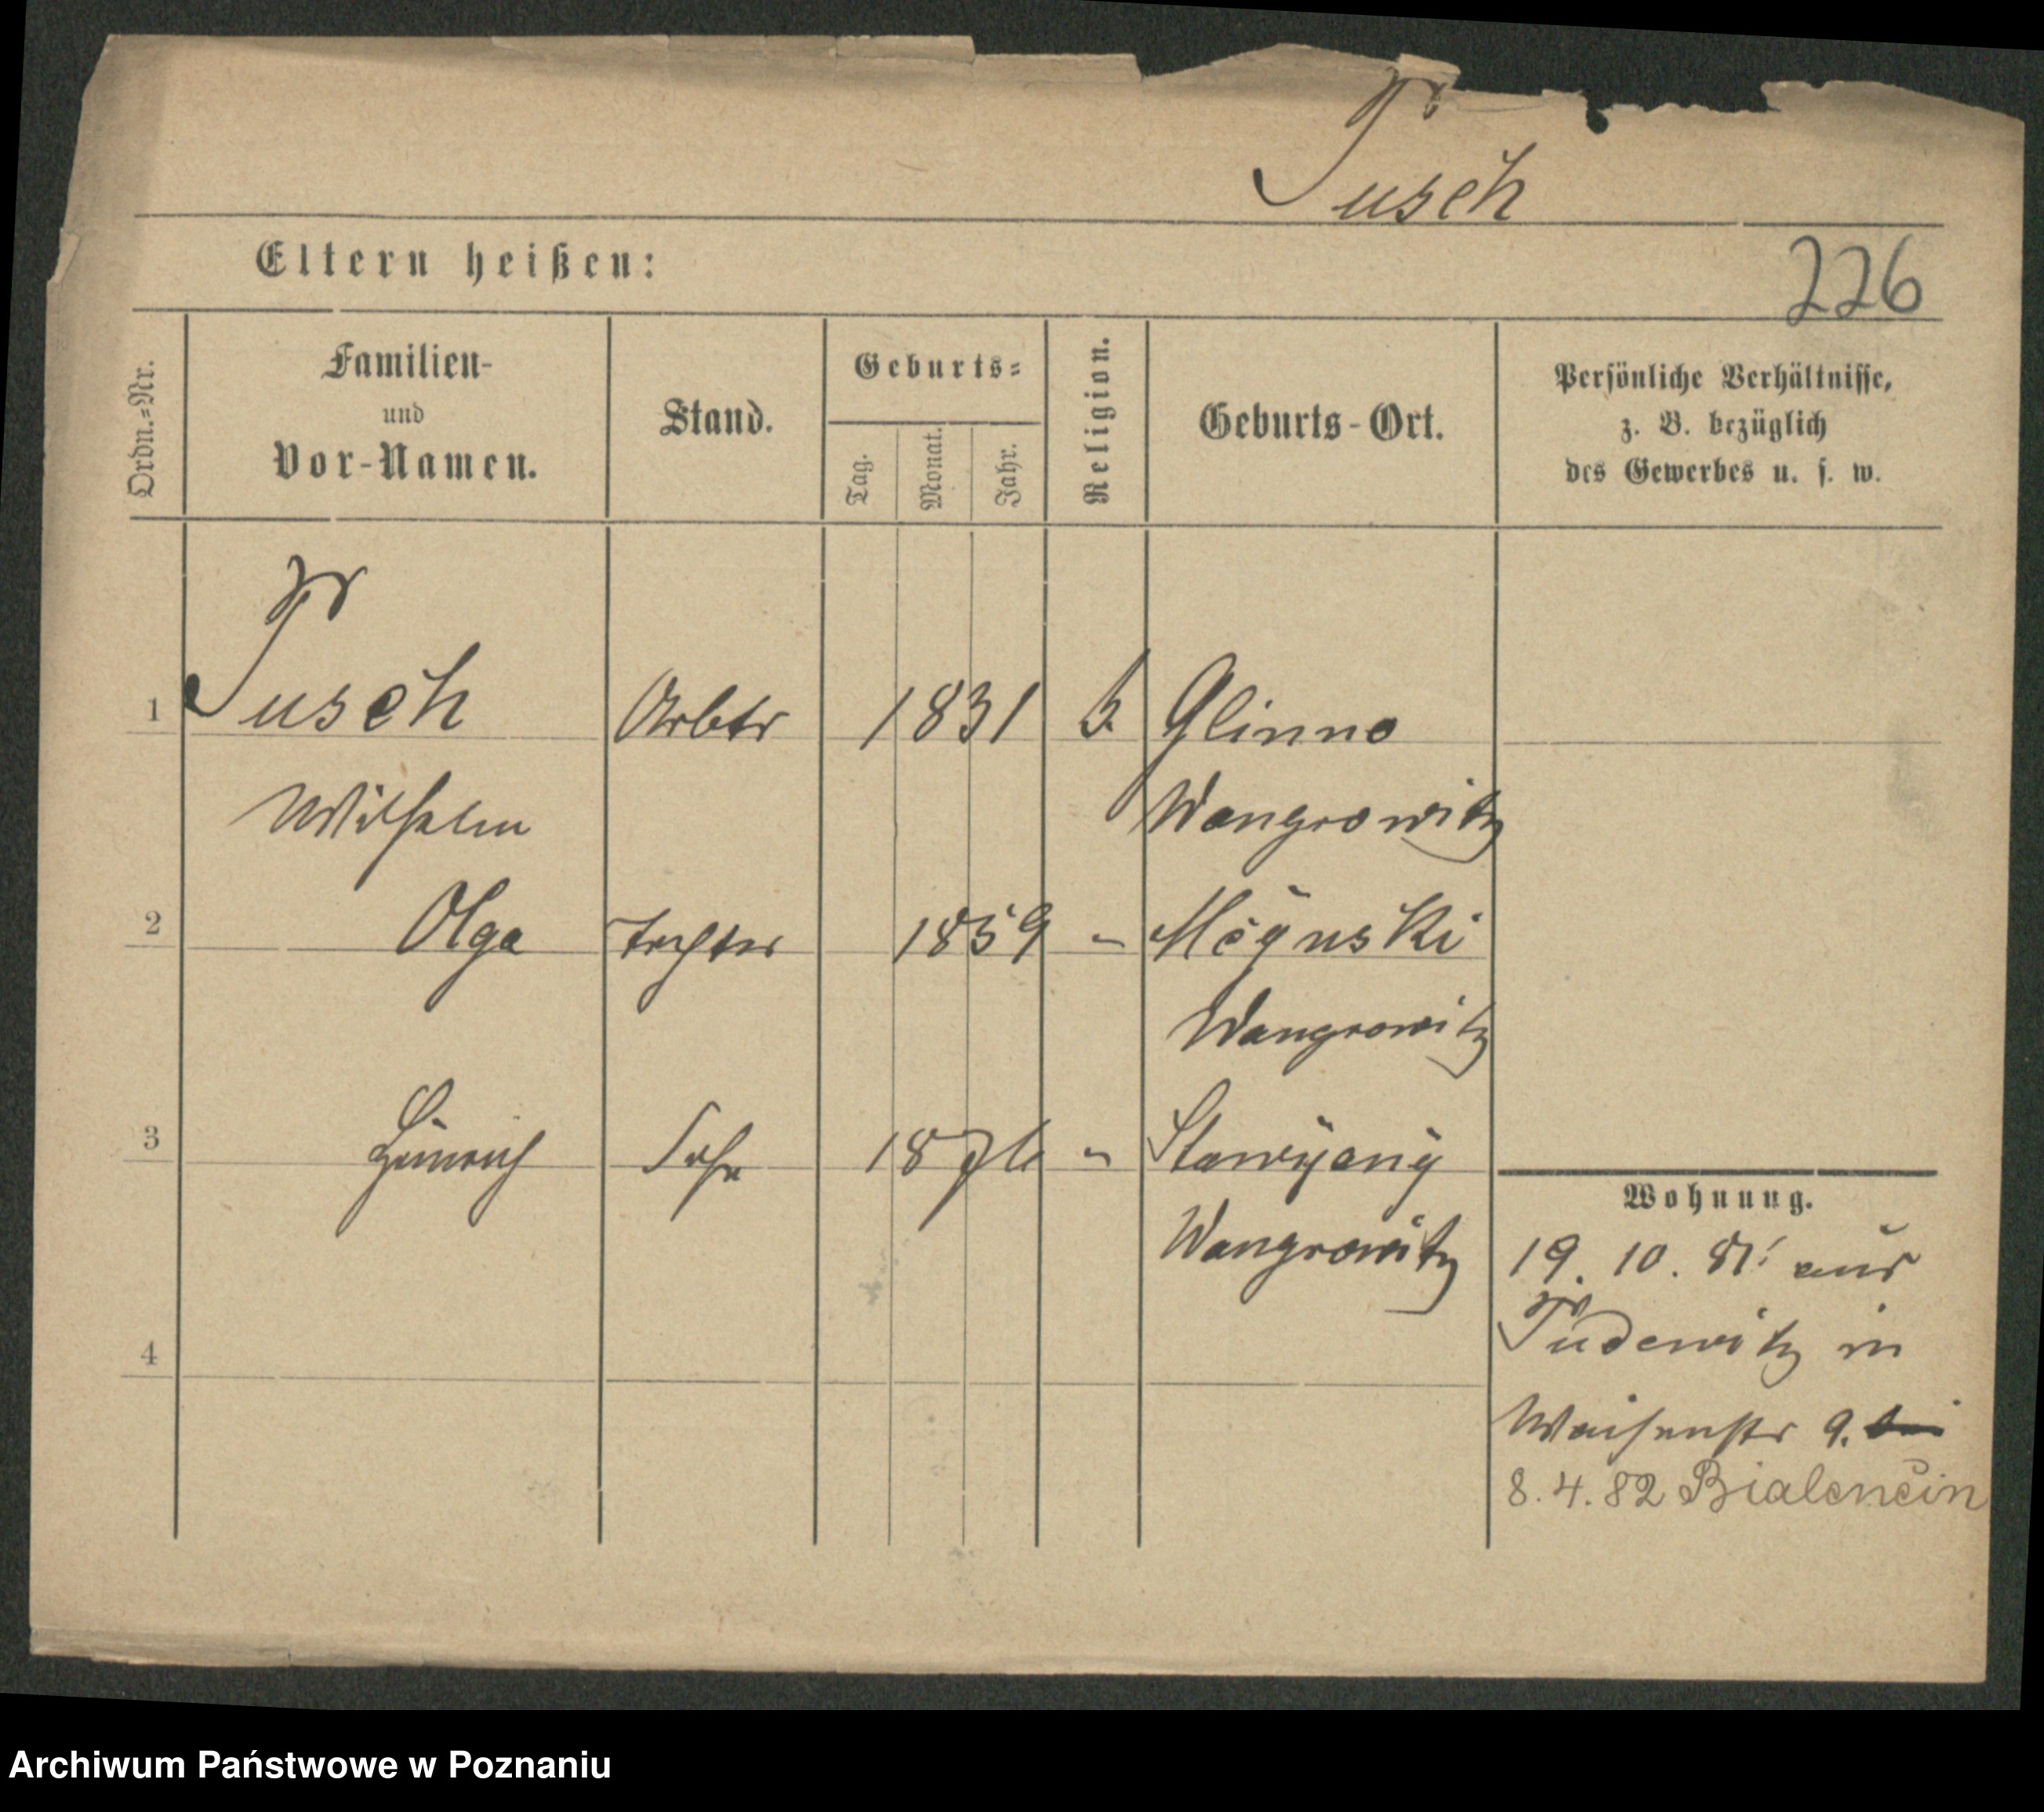 Tusch
Eltern heißen:
226
Ordn.=Nr.
Familien-
und
Vor-Namen.
Stand.
Geburts=
Tag.
Monat.
Jahr.
Religion.
Geburts-Ort.
Persönliche Verhältnisse,
z. B. bezüglich
des Gewerbes u. s. w.
1 Tusch Arbtr 1831 Glinno
Wilhelm Wongrowitz
2 Olga Tochter 1859 -
Wongrowitz
3 Heinrich Sohn 1876 -
Wongrowitz
Wohnung.
19. 10. 81 aus
Pudewitz in
Waisenstr 9.
8. 4. 82 Bialenčin
4
Archiwum Państwowe w Poznaniu